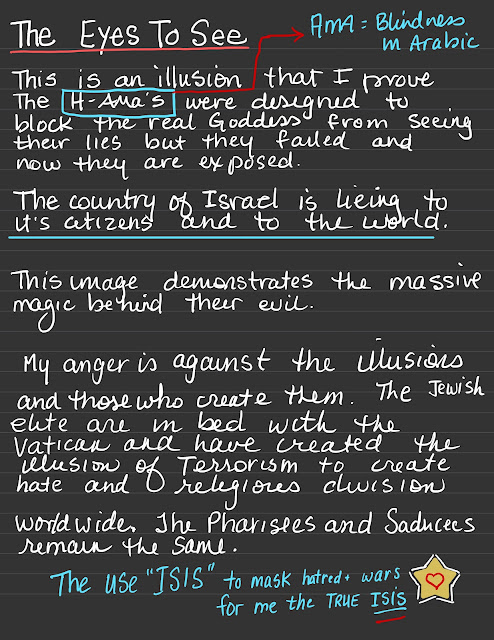 The Eyes To See
AMA = Blindness
in Arabic
This is an illusion that I prove
The H-Ama's were designed to
block the real Goddess from seeing
their lies but they failed and
now they are exposed.
The country of Israel is lieing to
it's citizens and to the world.
This image demonstrates the massive
magic behind their evil.
My anger is against the illusions
and those who create them. The Jewish
elite are in bed with the
Vatican and have created the
illusion of Terrorism to create
hate and religious division
worldwide. The Pharisees and Saducees
remain the same.
The use "ISIS" to mask hatred + wars
for me the TRUE ISIS